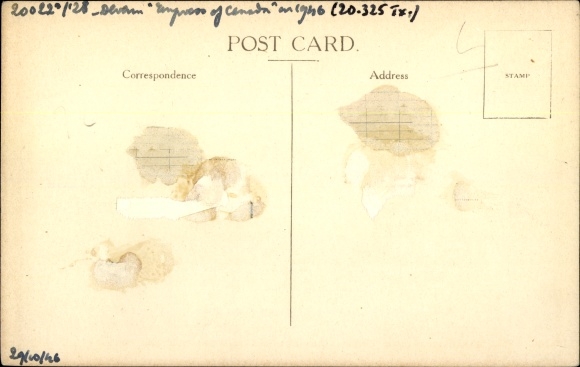 20022ᵗ/'28 - Devenu "Empress of Canada" en 1946 (20.325 Tx.)
POST CARD.
Correspondence
Address
STAMP
29/10/46